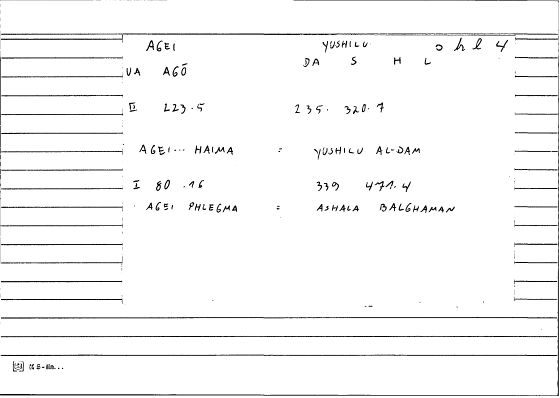 AGEI YUSHILU o h l 4
UA AGŌ DA S H L
II 223.5 235. 320.7
AGEI... HAIMA = YUSHILU AL-DAM
I 80 .16 339 471.4
AGEI PHLEGMA = ASHALA BALGHAMAN